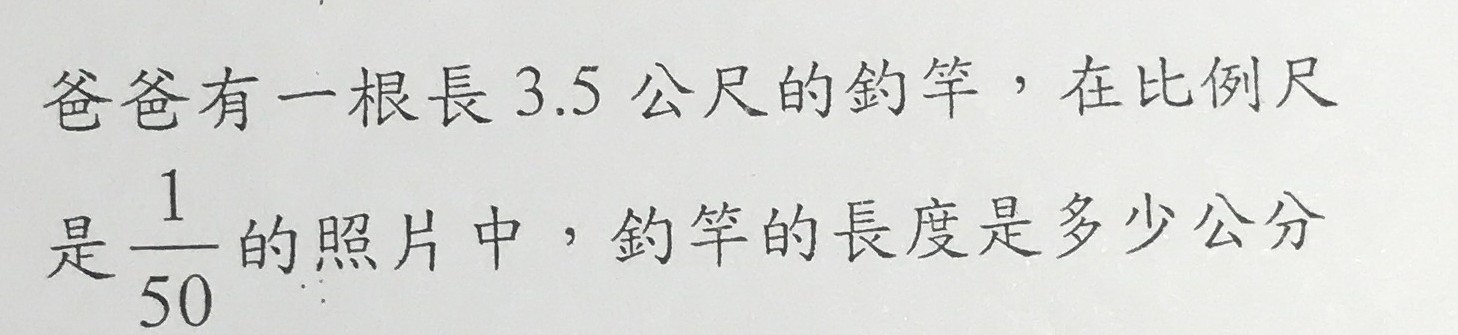 爸爸有一根長 3.5 公尺的釣竿，在比例尺
是 1/50 的照片中，釣竿的長度是多少公分